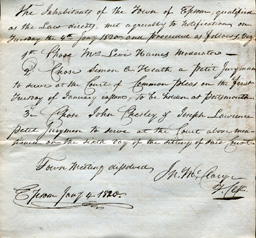 The Inhabitants of the Town of Epsom, qualified
as the Law directs, met agreeably to Notification, on
Tuesday the 4th Jany 1820 and proceeded as follows
1st Chose Mr Levi Haines Moderator
2 Chose Simon A Heath a Petit Juryman
to serve at the Court of Common Pleas on the first
Tuesday of January to be holden at Portsmouth
3 Chose John Chesley & Joseph Lawrence
Petit Jurymen to serve at the Court above
at the day of the setting of said Court
Town Meeting dissolved
Jas McClary
T. Clk
Epsom Jany 4 1820